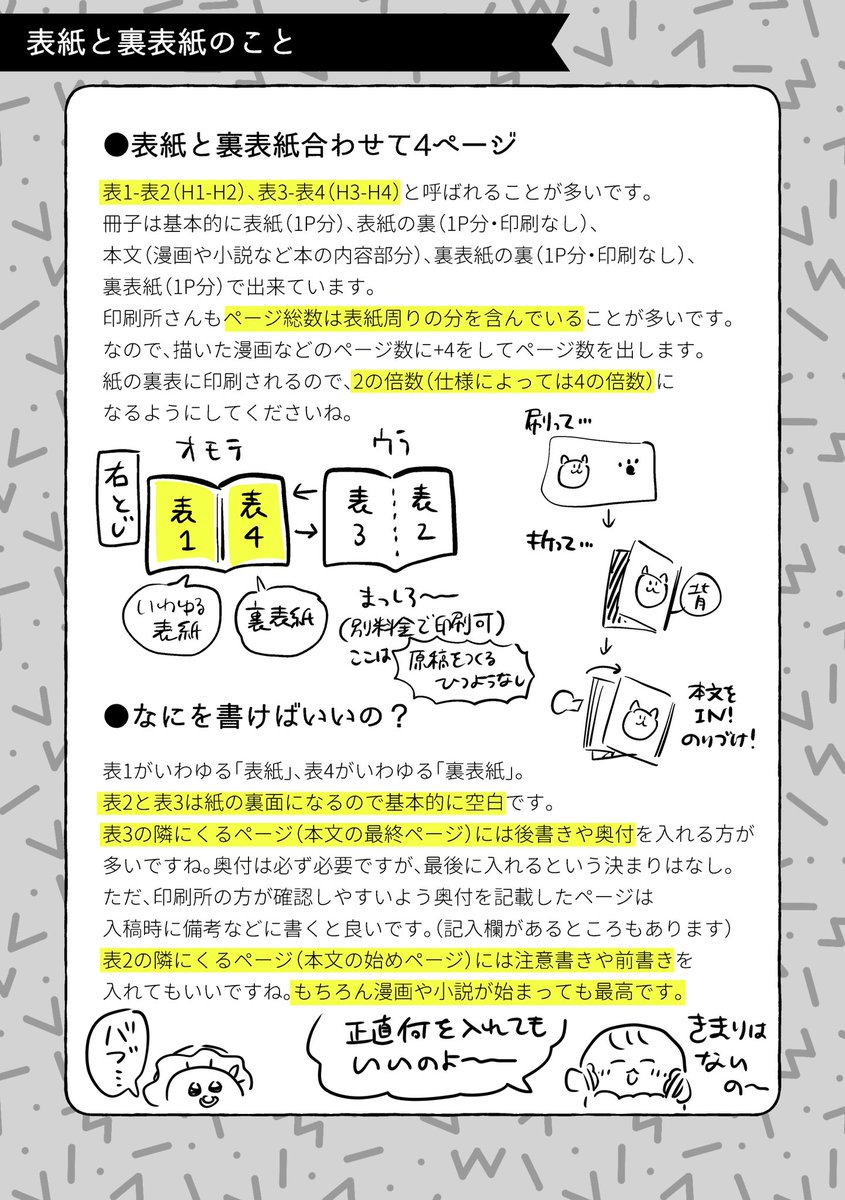 表紙と裏表紙のこと
●表紙と裏表紙合わせて4ページ
表1-表2(H1-H2)、表3-表4(H3-H4)と呼ばれることが多いです。
冊子は基本的に表紙(1P分)、表紙の裏(1P分・印刷なし)、
本文(漫画や小説など本の内容部分)、裏表紙の裏(1P分・印刷なし)、
裏表紙(1P分)で出来ています。
印刷所さんもページ総数は表紙周りの分を含んでいることが多いです。
なので、描いた漫画などのページ数に+4をしてページ数を出します。
紙の裏表に印刷されるので、2の倍数(仕様によっては4の倍数)に
なるようにしてくださいね。
右とじ
オモテ
表1
表4
いわゆる
表紙
裏表紙
ウラ
表3
表2
まっしろ〜〜
(別料金で印刷可)
ここは
原稿をつくる
ひつようなし
刷って…
折って…
背
本文を
IN!
のりづけ!
●なにを書けばいいの?
表1がいわゆる「表紙」、表4がいわゆる「裏表紙」。
表2と表3は紙の裏面になるので基本的に空白です。
表3の隣にくるページ(本文の最終ページ)には後書きや奥付を入れる方が
多いですね。奥付は必ず必要ですが、最後に入れるという決まりはなし。
ただ、印刷所の方が確認しやすいよう奥付を記載したページは
入稿時に備考などに書くと良いです。(記入欄があるところもあります)
表2の隣にくるページ(本文の始めページ)には注意書きや前書きを
入れてもいいですね。もちろん漫画や小説が始まっても最高です。
バブ…
正直何を入れても
いいのよ〜〜
きまりは
ない
の〜